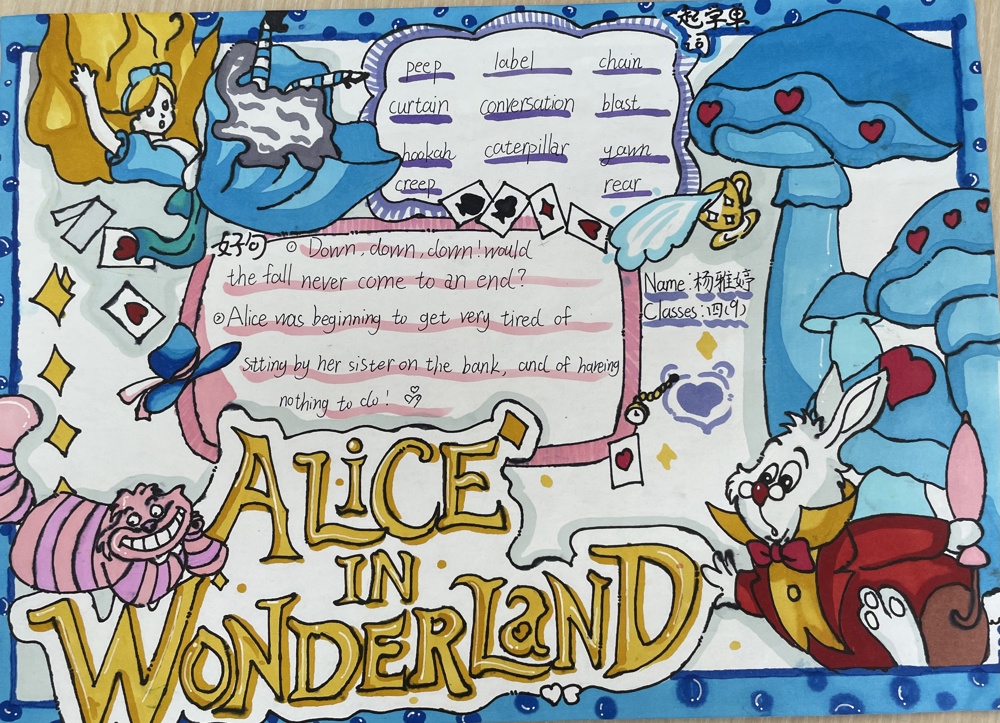 一起字单
词
peep label chain
curtain conversation blast
hookah caterpillar yawn
creep rear
好句 ① Down, down, down! would
the fall never come to an end?
②Alice was beginning to get very tired of
sitting by her sister on the bank, and of haveing
nothing to do!
Name:杨雅婷
Classes:四(9)
ALiCE
IN
WONDERLaND